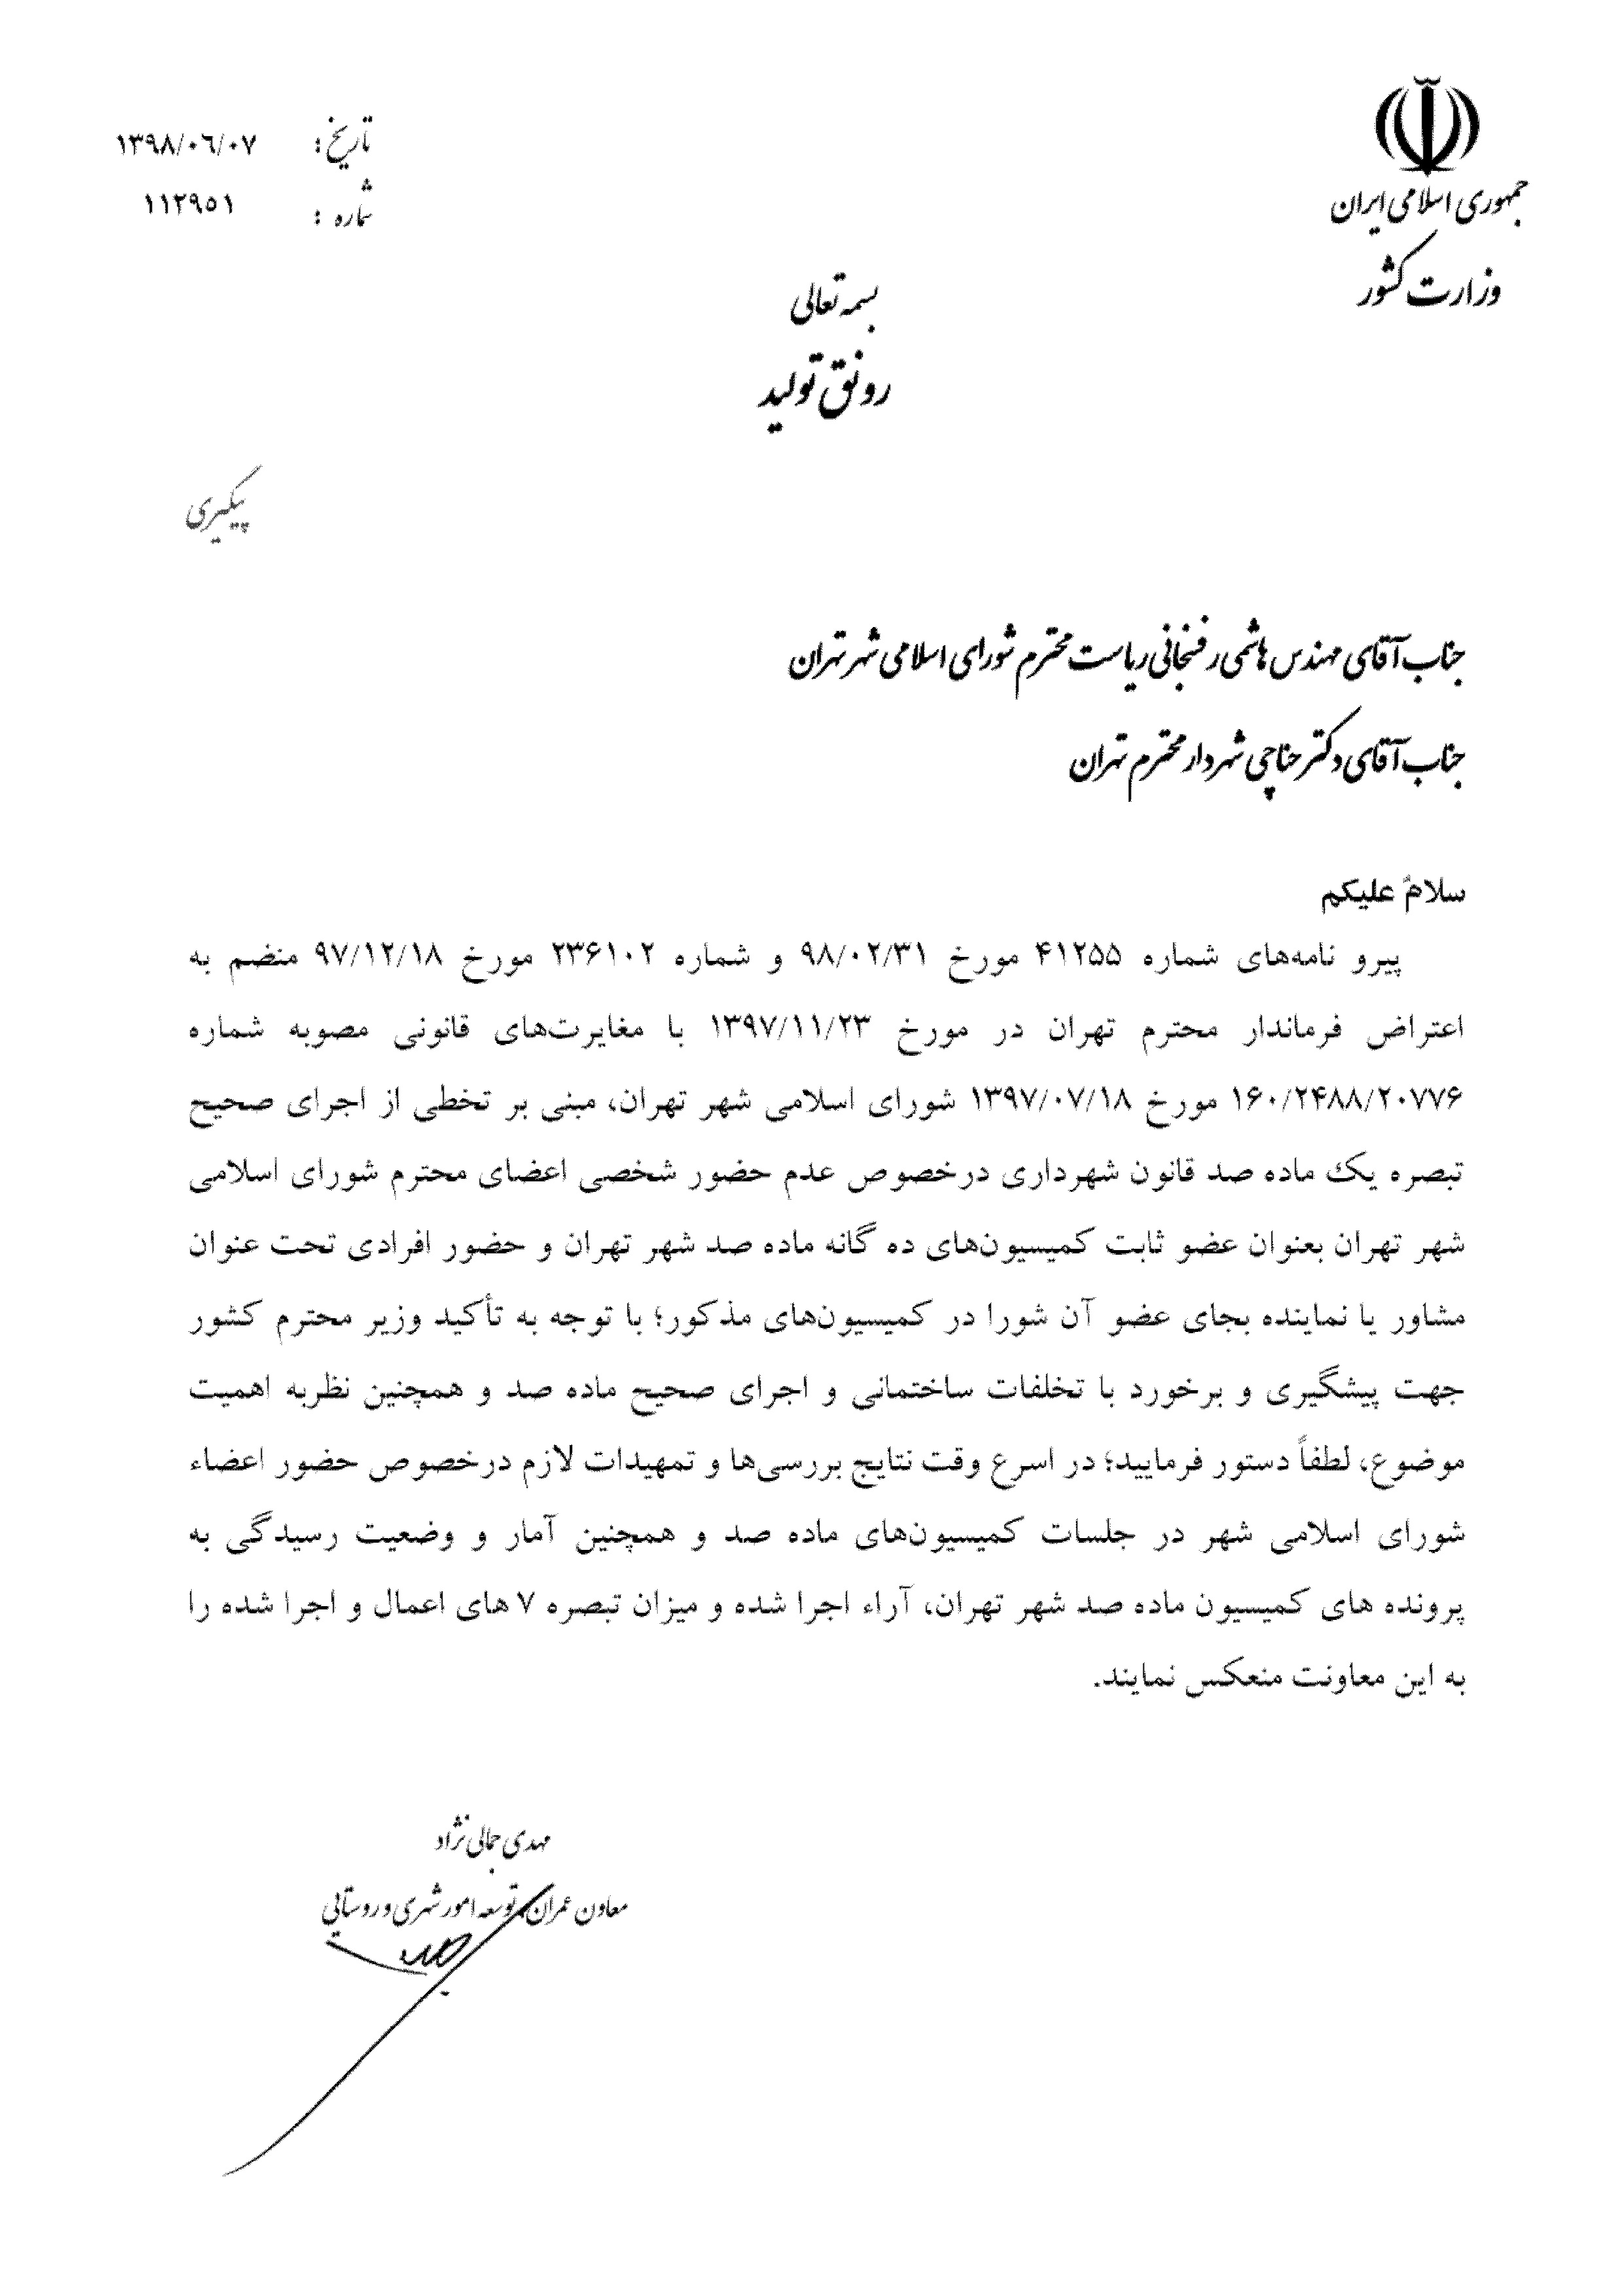 جمهوری اسلامی ایران
وزارت کشور
تاریخ : ۱۳۹۸/۰۶/۰۷
شماره : ۱۱۲۹۵۱
بسمه تعالی
رونق تولید
پیگیری
جناب آقای مهندس هاشمی رفسنجانی ریاست محترم شورای اسلامی شهر تهران
جناب آقای دکتر حناچی شهردار محترم تهران
سلامٌ علیکم
پیرو نامه‌های شماره ۴۱۲۵۵ مورخ ۹۸/۰۲/۳۱ و شماره ۲۳۶۱۰۲ مورخ ۹۷/۱۲/۱۸ منضم به
اعتراض فرماندار محترم تهران در مورخ ۱۳۹۷/۱۱/۲۳ با مغایرت‌های قانونی مصوبه شماره
۱۶۰/۲۴۸۸/۲۰۷۷۶ مورخ ۱۳۹۷/۰۷/۱۸ شورای اسلامی شهر تهران، مبنی بر تخطی از اجرای صحیح
تبصره یک ماده صد قانون شهرداری درخصوص عدم حضور شخصی اعضای محترم شورای اسلامی
شهر تهران بعنوان عضو ثابت کمیسیون‌های ده گانه ماده صد شهر تهران و حضور افرادی تحت عنوان
مشاور یا نماینده بجای عضو آن شورا در کمیسیون‌های مذکور؛ با توجه به تأکید وزیر محترم کشور
جهت پیشگیری و برخورد با تخلفات ساختمانی و اجرای صحیح ماده صد و همچنین نظربه اهمیت
موضوع، لطفاً دستور فرمایید؛ در اسرع وقت نتایج بررسی‌ها و تمهیدات لازم درخصوص حضور اعضاء
شورای اسلامی شهر در جلسات کمیسیون‌های ماده صد و همچنین آمار و وضعیت رسیدگی به
پرونده های کمیسیون ماده صد شهر تهران، آراء اجرا شده و میزان تبصره ۷ های اعمال و اجرا شده را
به این معاونت منعکس نمایند.
مهدی جمالی نژاد
معاون عمران و توسعه امور شهری و روستایی